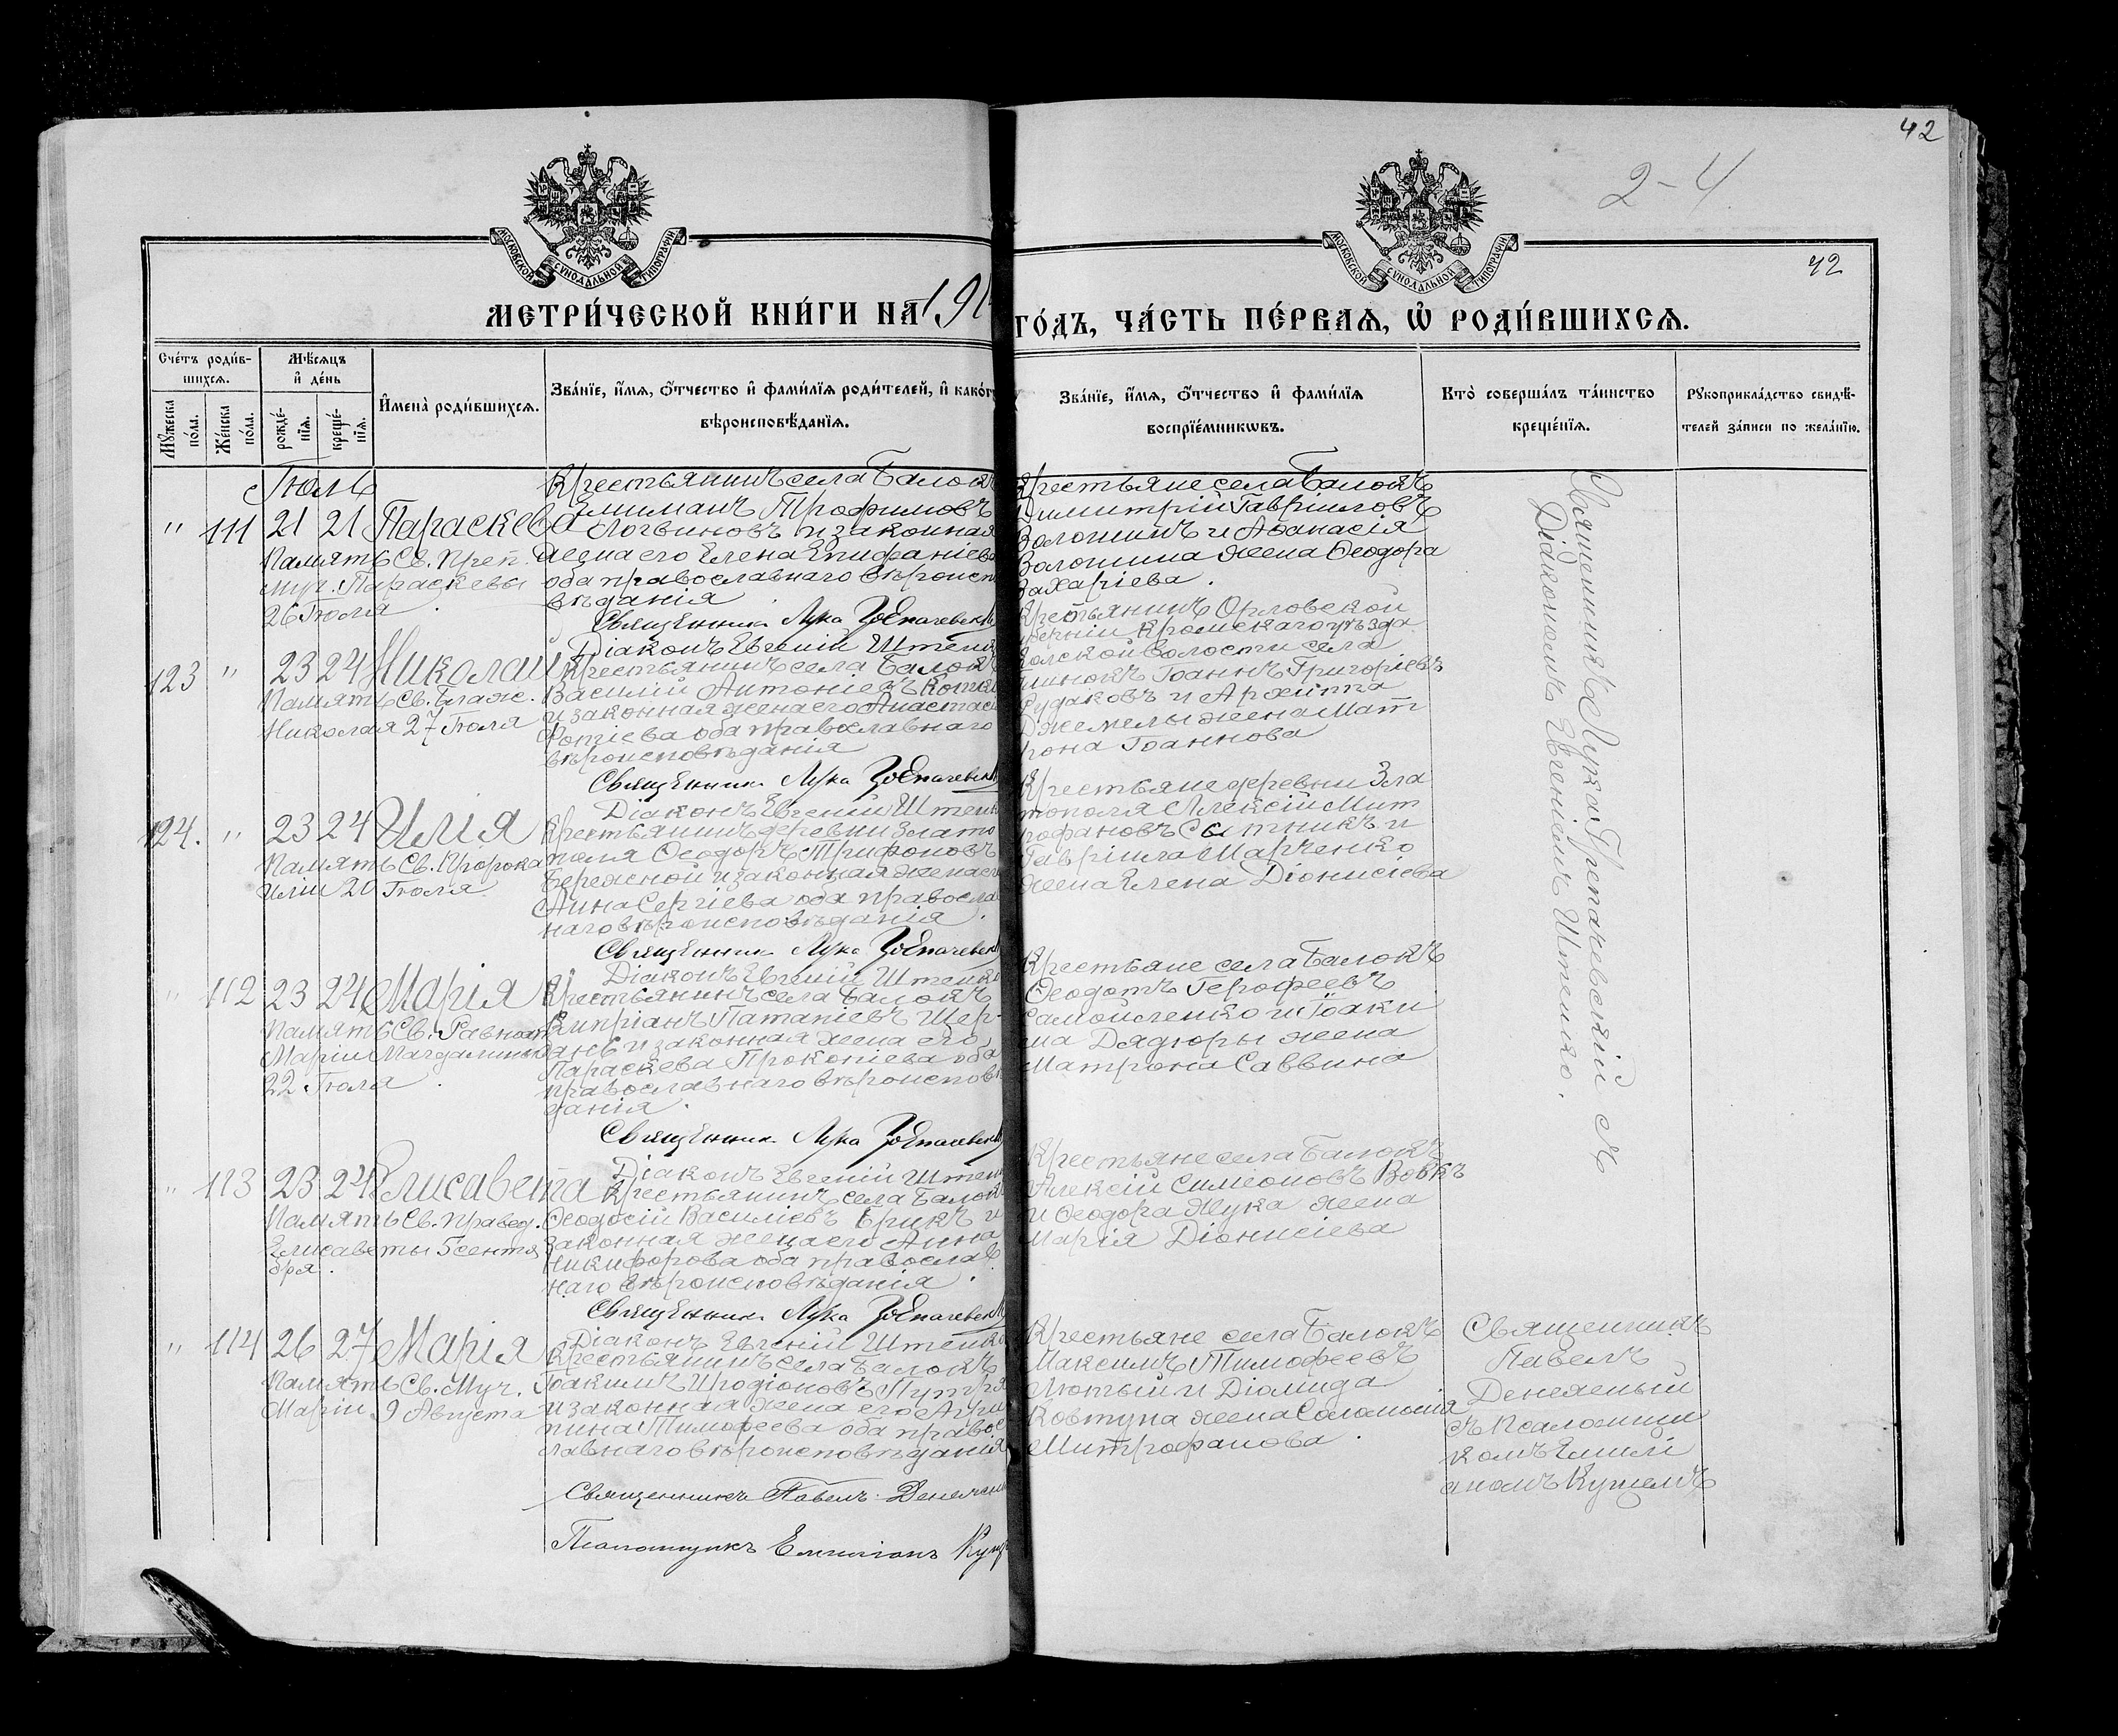 42
2-4
42
МОСКОВСКОЙ СѴНОДАЛЬНОЙ ТИПОГРАФІИ
МОСКОВСКОЙ СѴНОДАЛЬНОЙ ТИПОГРАФІИ
МЕТРИ́ЧЕСКОЙ КНИ́ГИ НА 191
ГО́ДЪ, ЧА́СТЬ ПЕ́РВАЯ, Ѡ РОДИ́ВШИХСЯ.
Сче́тъ роди́в-
шихся.
Мѣ́сяцъ
и де́нь
Имена̀ роди́вшихся.
Зва́нїе, и́мя, о́тчество и фами́лїя роди́телей, и како́г
вѣроисповѣ́данїя.
Мужеска по́ла.
Же́нска по́ла.
рожде́-нїя.
креще́-нїя.
Зва́нїе, и́мя, о́тчество и фами́лїя
воспрїе́мниковъ.
Кто̀ соверша́лъ та́инство
креще́нїя.
Рукоприкла́дство свидѣ́-
телей за́писи по жела́нїю.
Іюль
" 111 21 21 Параскева
Память Св. Преп.
муч. Параскевы
26 Іюля.
Крестьянинъ села Балокъ
Трофимовъ
Логвиновъ и законная
жена его Елена Епифаніева
оба православнаго вѣроиспо
вѣданія.
Священникъ Лука
Діаконъ Евгеній Штенк
Крестьяне села Балокъ
Димитрій Гавріиловъ
Волошинъ и Аѳанасія
Волошина жена Ѳеодора
Захаріева.
123 " 23 24 Николай
Память Св. Блаж.
Николая 27 Іюля
Крестьянинъ села Балокъ
Василій Антоніевъ
и законная жена его Анастасія
Фотіева оба православнаго
вѣроисповѣданія
Священникъ Лука
Діаконъ Евгеній Штенк
Крестьянинъ Орловской
губерніи Кромскаго уѣзда
волости села
Іоаннъ Григоріевъ
Рудаковъ и Архиппа
Джемелы жена Мат
рона Іоаннова
124. " 23 24 Илія
Память Св. Пророка
Иліи 20 Іюля.
Крестьянинъ деревни Злато
поля Ѳеодоръ Трифоновъ
Бережной и законная жена его
Анна Сергіева оба православ
наго вѣроисповѣданія.
Священникъ Лука
Діаконъ Евгеній Штенко
Крестьяне деревни Зла
тополя Алексій Мит
рофановъ Сытникъ и
Гавріила Марченко
жена Елена Діонисіева
" 112 23 24 Марія
Память Св. Равноап.
Маріи Магдалины
22 Іюля.
Крестьянинъ села Балокъ
Кипріанъ Щер-
бань и законная жена его
Параскева Прокопіева оба
православнаго вѣроисповѣ
данія.
Священникъ Лука
Діаконъ Евгеній Штен
Крестьяне села Балокъ
Ѳеодотъ Герофеевъ
Самойленко и Іоаки
ма Дядюры жена
Матрона Саввина
" 113 23 24 Елисавета
Память Св. правед.
Елисаветы 5 сентя
бря.
Крестьянинъ села Балокъ
Ѳеодосій Василіевъ Брикъ и
законная жена его Анна
Никифорова оба православ
наго вѣроисповѣданія.
Священникъ Лука
Діаконъ Евгеній Штенко
Крестьяне села Балокъ
Алексій Симеоновъ Вовкъ
и Ѳеодора Жука жена
Марія Діонисіева
Священникъ Лука
Діакономъ Евгеніемъ Штенко.
" 114 26 27 Марія
Память Св. Муч.
Маріи 9 Августа
Крестьянинъ села Балокъ
Іоакимъ Иродіоновъ
и законная жена его Агри
пина Тимофеева оба правос
лавнаго вѣроисповѣданія
Священникъ Павелъ Денежный
Псаломщикъ Емиліанъ Куш
Крестьяне села Балокъ
Максимъ Тимофеевъ
Лютый и Діомида
Ковтуна жена Соломонія
Митрофанова.
Священникъ
Павелъ
Денежный
съ псаломщи
комъ Емилі
аномъ